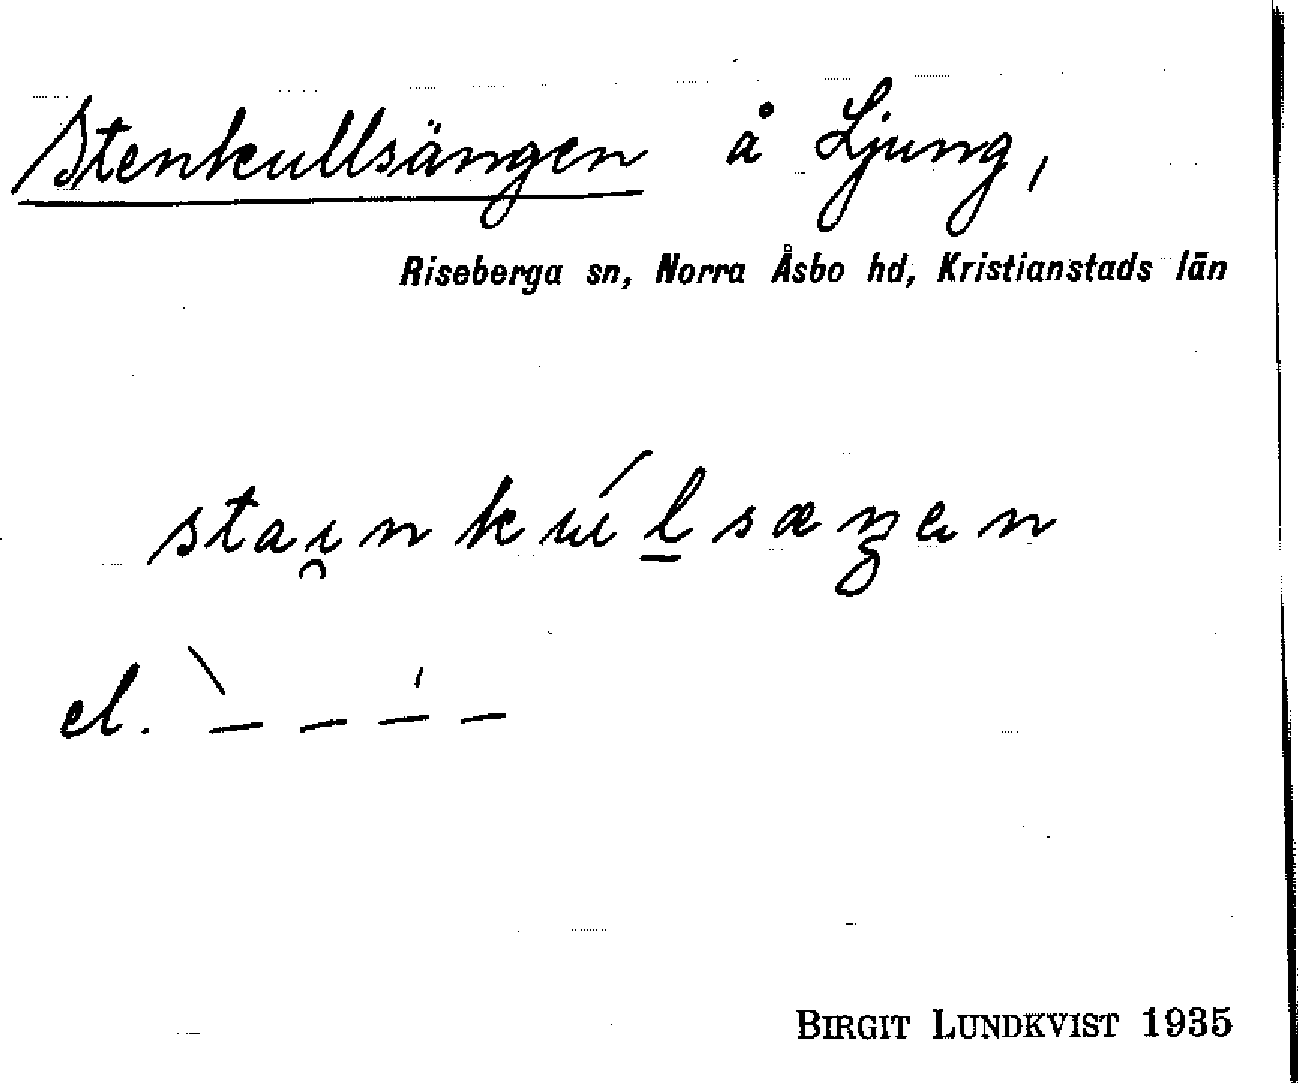 Stenkullsängen å Ljung,
Riseberga sn, Norra Åsbo hd, Kristianstads län
staı̯nkúl̲sæŋen
el. ̀– – –́ –
BIRGIT LUNDKVIST 1935